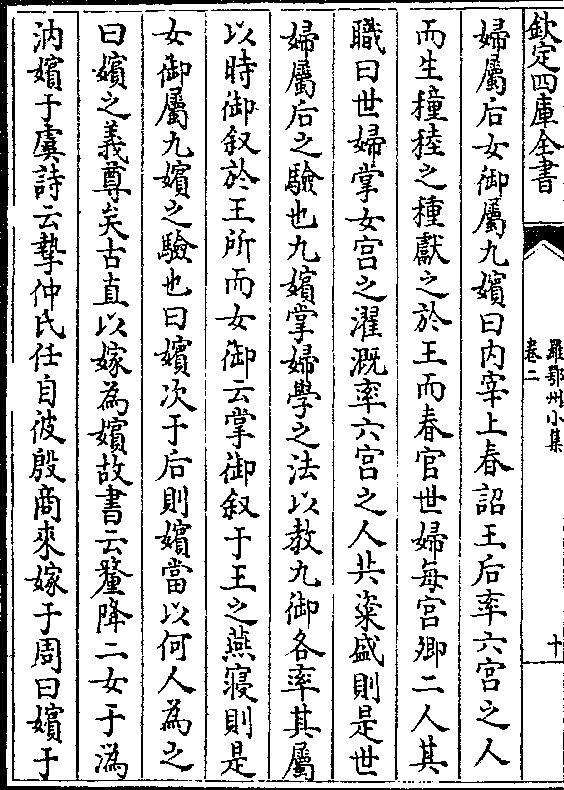 欽定四庫全書
羅鄂州小集
卷二
十
婦屬后女御屬九嬪曰内宰上春詔王后率六宫之人
而生穜稑之種獻之於王而春官世婦每宫卿二人其
職曰世婦掌女宫之濯溉率六宫之人共粢盛則是世
婦屬后之驗也九嬪掌婦學之法以教九御各率其屬
以時御叙於王所而女御云掌御叙于王之燕寢則是
女御屬九嬪之驗也曰嬪次于后則嬪當以何人為之
曰嬪之義尊矣古直以嫁為嬪故書云釐降二女于溈
汭嬪于虞詩云摯仲氏任自彼殷商來嫁于周曰嬪于